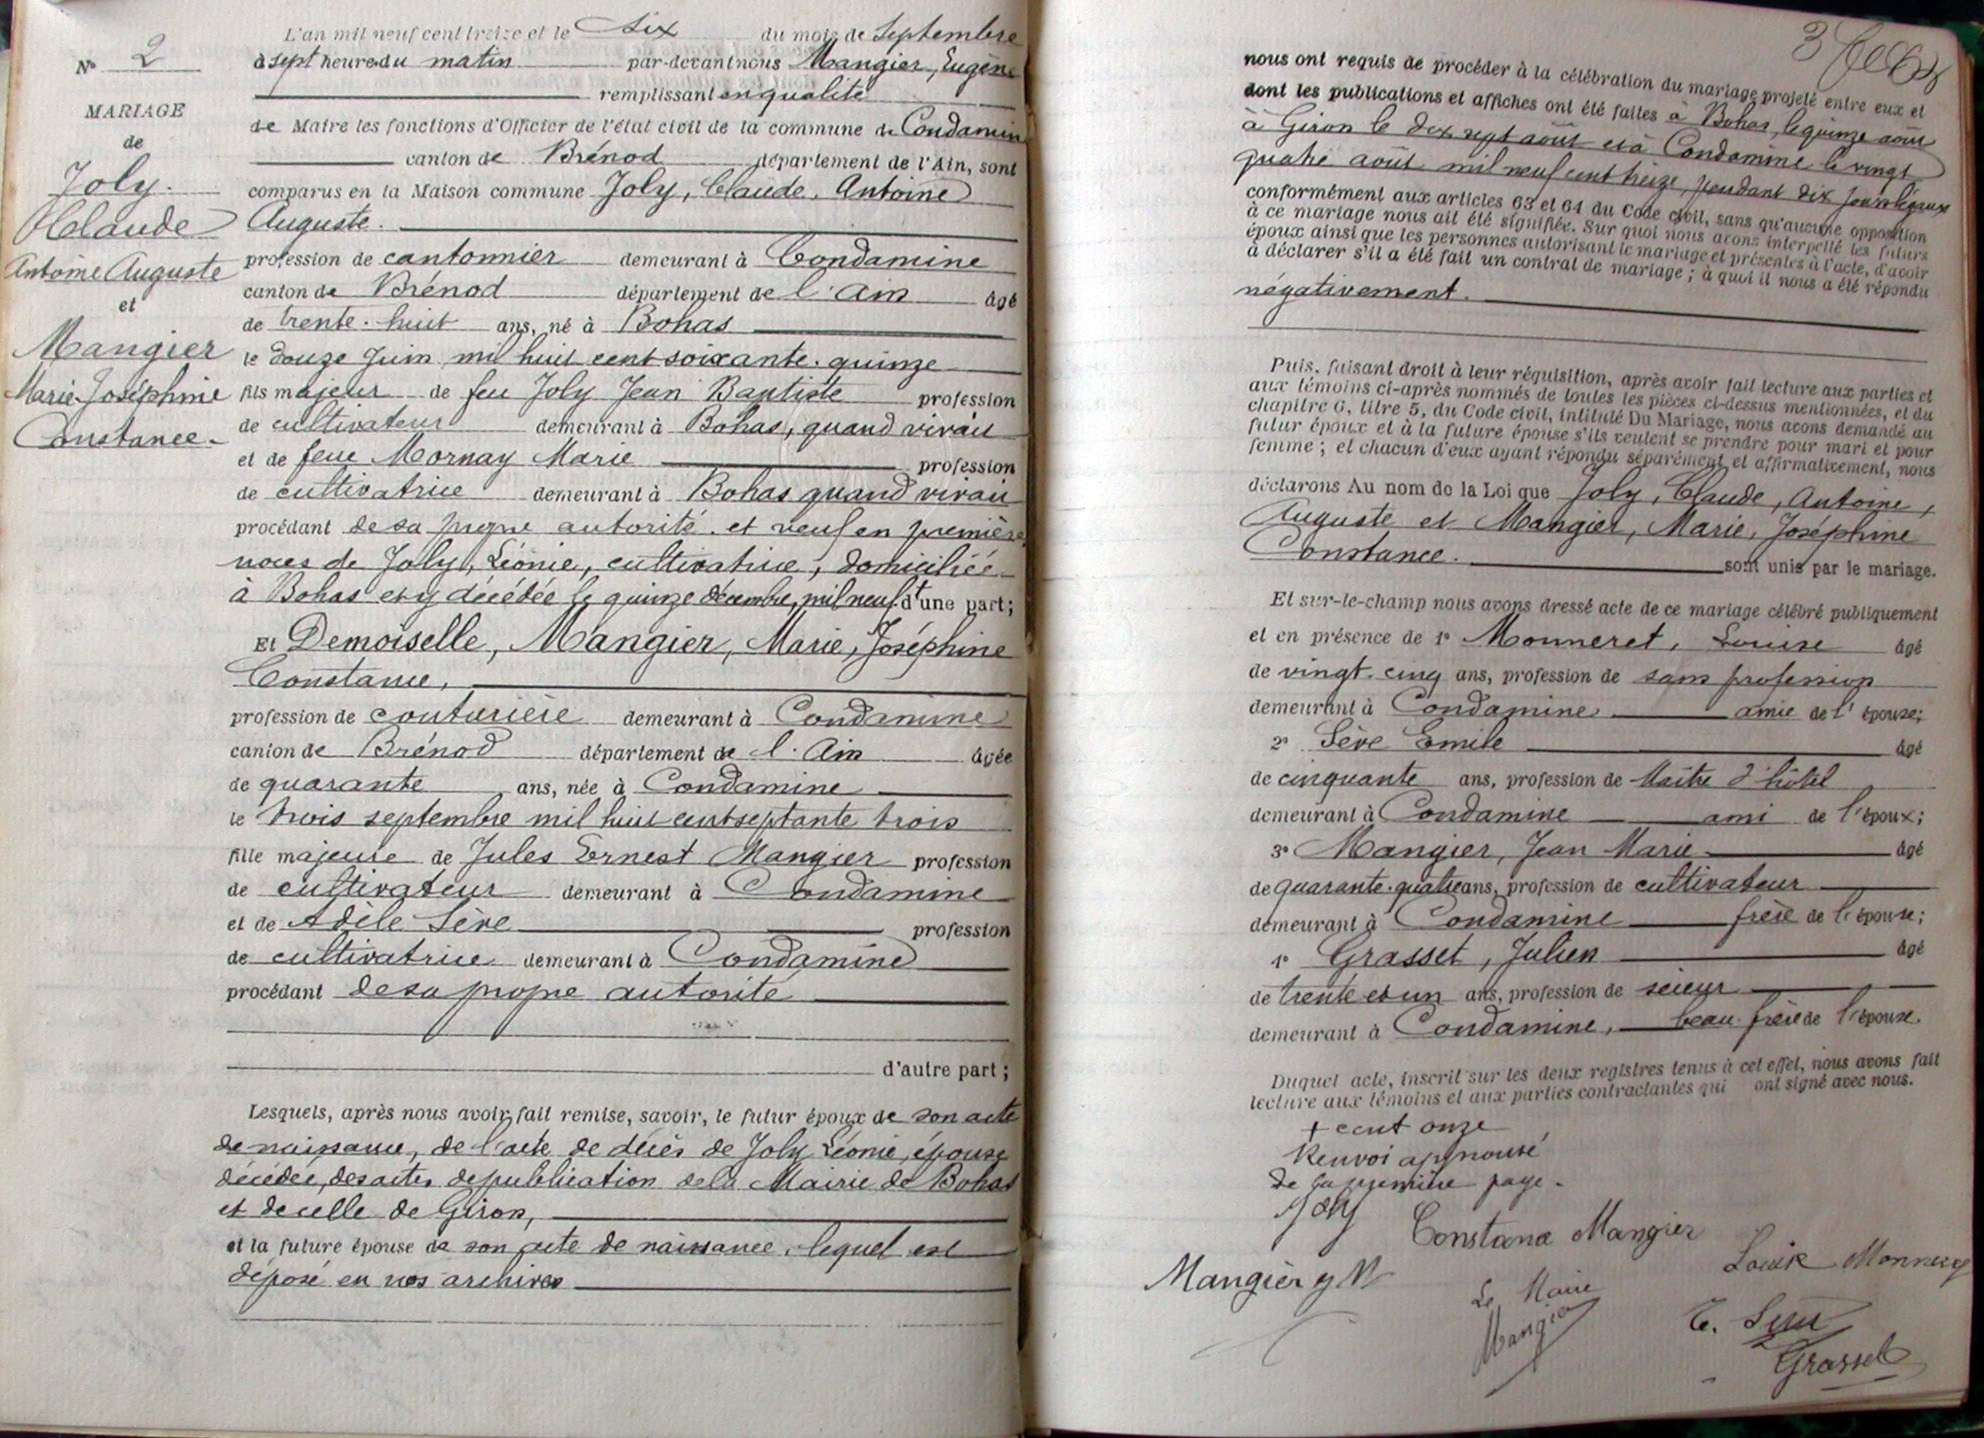 N° 2
MARIAGE
de
Joly
Claude
Antoine Auguste
et
Mangier
Marie Joséphine
Constance
L'an mil neuf cent treize et le six du mois de Septembre
à sept heure du matin par-devant nous Mangier, Eugène
remplissant en qualité
de Maire les fonctions d'Officier de l'état civil de la commune de Condamine
canton de Brénod département de l'Ain, sont
comparus en la Maison commune Joly, Claude, Antoine
Auguste.
profession de cantonnier demeurant à Condamine
canton de Brénod département de l'Ain âgé
de trente-huit ans, né à Bohas
le douze Juin mil huit cent soixante-quinze
fils majeur de feu Joly Jean Baptiste profession
de cultivateur demeurant à Bohas, quand vivait
et de feue Mornay Marie profession
de cultivatrice demeurant à Bohas quand vivait
procédant de sa propre autorité et veuf en première
noces de Joly, Léonie, cultivatrice, domiciliée
à Bohas et y décédée le quinze décembre, mil neuf + d'une part;
Et Demoiselle, Mangier, Marie, Joséphine
Constance,
profession de couturière demeurant à Condamine
canton de Brénod département de l'Ain âgée
de quarante ans, née à Condamine
le trois septembre mil huit cent septante trois
fille majeure de Jules Ernest Mangier profession
de cultivateur demeurant à Condamine
et de Adèle Sève profession
de cultivatrice demeurant à Condamine
procédant de sa propre autorité
d'autre part;
Lesquels, après nous avoir fait remise, savoir, le futur époux de son acte
de naissance, de l'acte de décès de Joly Léonie, épouse
décédée, des actes de publication de la Mairie de Bohas
et de celle de Giron,
et la future épouse de son acte de naissance, lequel est
déposé en nos archives
3
nous ont requis de procéder à la célébration du mariage projeté entre eux et
dont les publications et affiches ont été faites à Bohas, le quinze août
à Giron le dix sept août et à Condamine le vingt
quatre août mil neuf cent treize, pendant dix jours légaux
conformément aux articles 63 et 64 du Code civil, sans qu'aucune opposition
à ce mariage nous ait été signifiée. Sur quoi nous avons interpellé les futurs
époux ainsi que les personnes autorisant le mariage et présentes à l'acte, d'avoir
à déclarer s'il a été fait un contrat de mariage; à quoi il nous a été répondu
négativement.
Puis, faisant droit à leur réquisition, après avoir fait lecture aux parties et
aux témoins ci-après nommés de toutes les pièces ci-dessus mentionnées, et du
chapitre 6, titre 5, du Code civil, intitulé Du Mariage, nous avons demandé au
futur époux et à la future épouse s'ils veulent se prendre pour mari et pour
femme; et chacun d'eux ayant répondu séparément et affirmativement, nous
déclarons Au nom de la Loi que Joly, Claude, Antoine,
Auguste et Mangier, Marie, Joséphine
Constance. sont unis par le mariage.
Et sur-le-champ nous avons dressé acte de ce mariage célébré publiquement
et en présence de 1° Monneret, Louise âgé
de vingt-cinq ans, profession de sans profession
demeurant à Condamine amie de l'épouse;
2° Sève Emile âgé
de cinquante ans, profession de Maître d'hôtel
demeurant à Condamine ami de l'époux;
3° Mangier, Jean Marie âgé
de quarante-quatre ans, profession de cultivateur
demeurant à Condamine frère de l'épouse;
4° Grasset, Julien âgé
de trente et un ans, profession de scieur
demeurant à Condamine, beau-frère de l'épouse.
Duquel acte, inscrit sur les deux registres tenus à cet effet, nous avons fait
lecture aux témoins et aux parties contractantes qui ont signé avec nous.
+ cent onze
Renvoi approuvé
de la première page.
Joly
Constance Mangier
Louise Monneret
Mangier J M
Le Maire
Mangier
E. Sève
Grasset